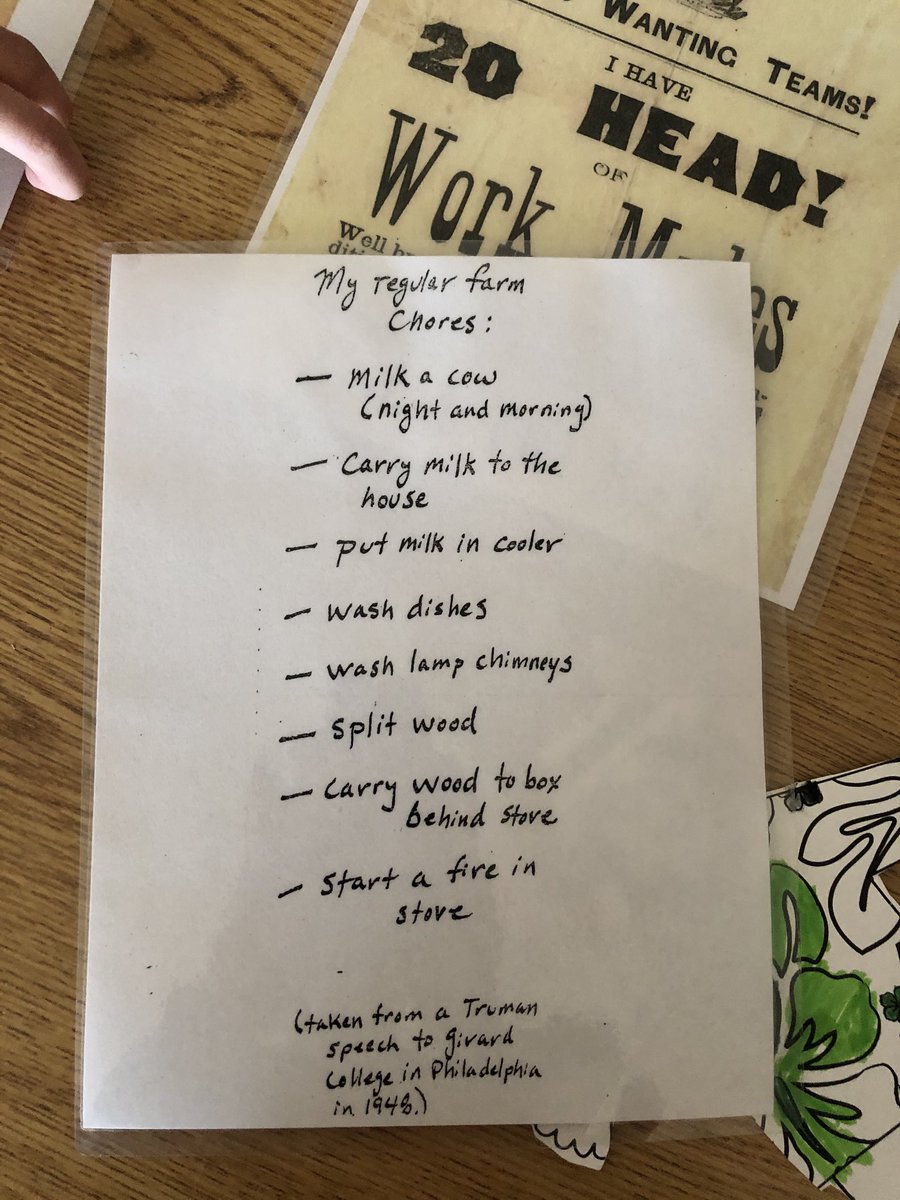 WANTING TEAMS!
I HAVE
20 HEAD!
OF
Work
Well
My regular farm
Chores:
— Milk a cow
(night and morning)
— Carry milk to the
house
— put milk in cooler
— wash dishes
— wash lamp chimneys
— split wood
— Carry wood to box
behind stove
— Start a fire in
stove
(taken from a Truman
speech to Girard
College in Philadelphia
in 1948.)